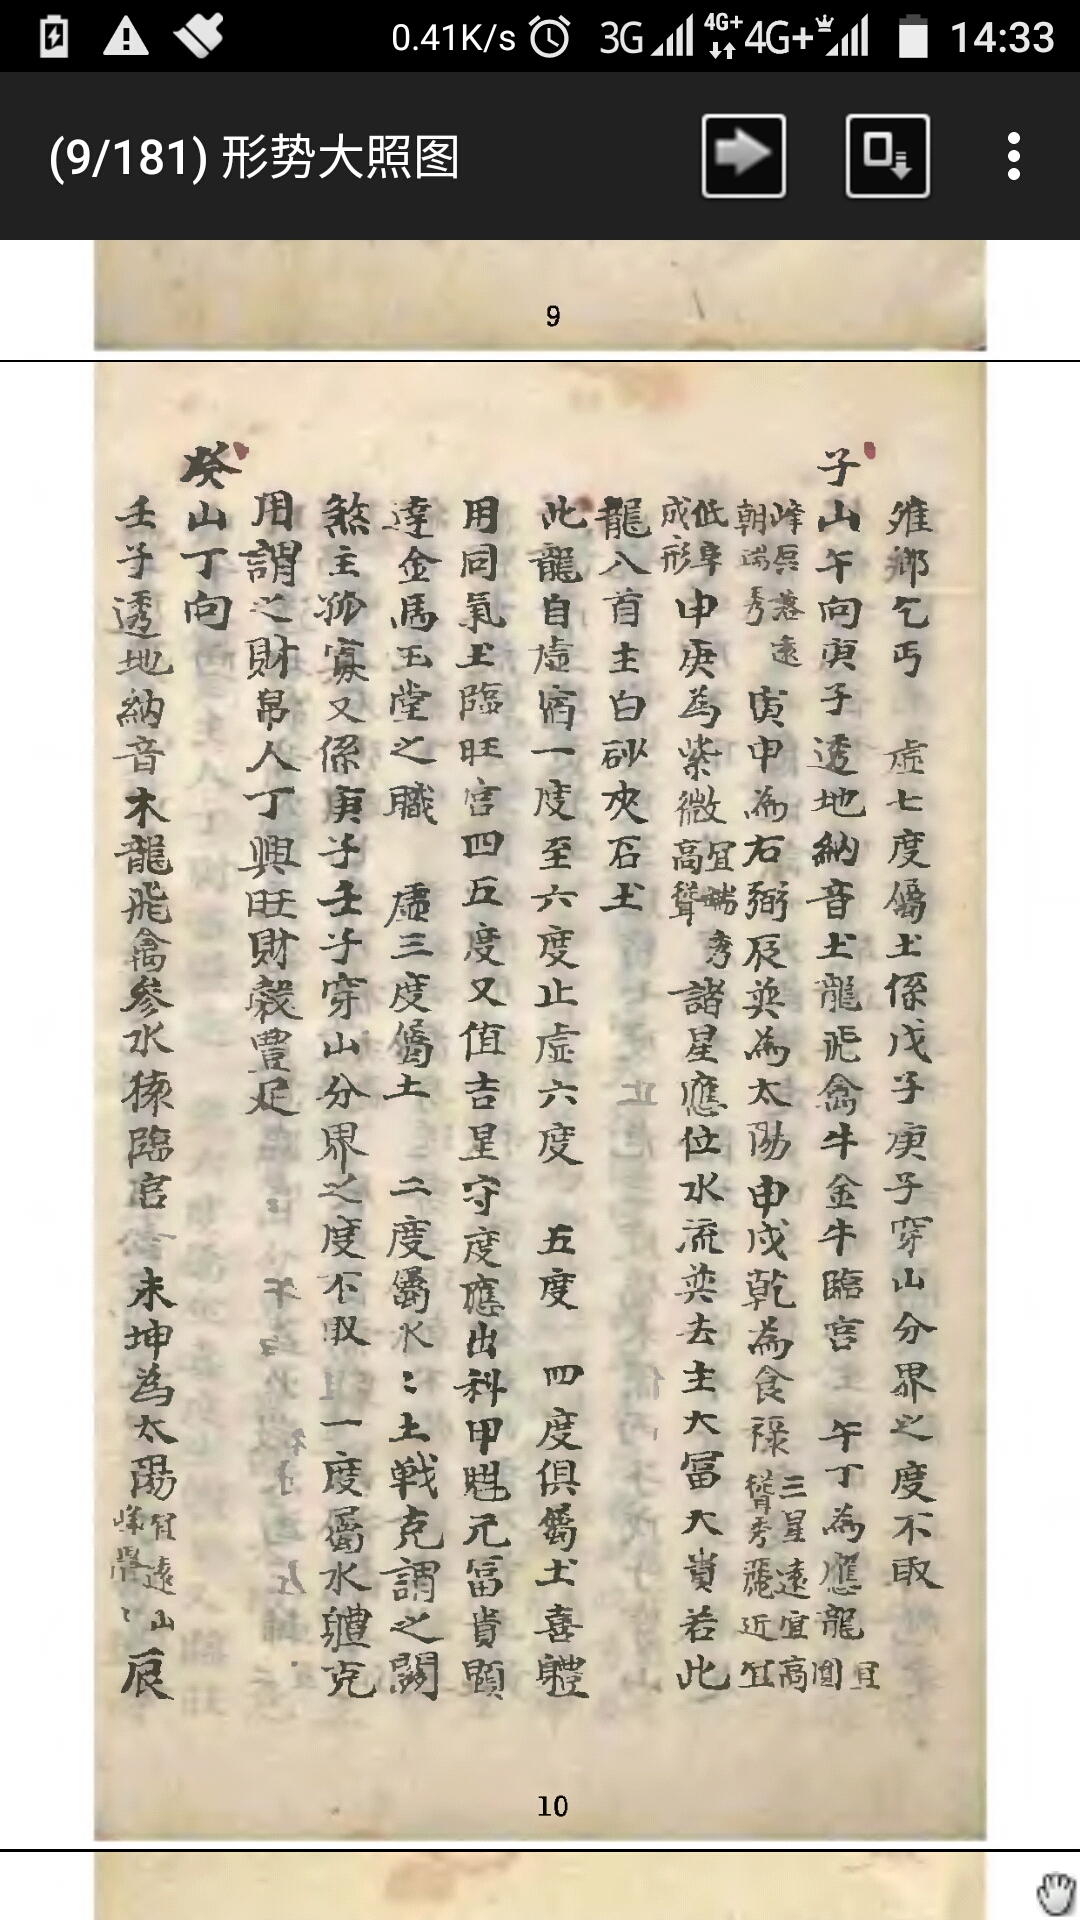 0.41K/s 3G 4G+ 4G+ 14:33
(9/181) 形势大照图
9
雖鄉乞丐 虛七度屬土係戊子庚子穿山分界之度不取
子山午向庚子透地納音土龍飛禽牛金牛臨官 午丁為應龍宜圓
峰尽落遠朝端秀 寅申為右弼辰巽為太陽申戌乾為食祿三星遠宜高聳秀麗近宜
低阜成形 申庚為紫微宜端秀高聳 諸星應位水流巽去主大富大貴若此
龍八首主白砂夾石土
此龍自虛宿一度至六度止虛六度 五度 四度俱屬土喜體
用同氣土臨旺宮四五度又值吉星守度應出科甲魁元富貴顯
達金馬玉堂之職 虛三度屬土 二度屬水:土戰克謂之關
煞主孤寡又係庚子壬子穿山分界之度不取 一度屬水體克
用謂之財帛人丁興旺財穀豐足
癸山丁向
壬子透地納音木龍飛禽參水猿臨官 未坤為太陽宜遠山峰 辰
10